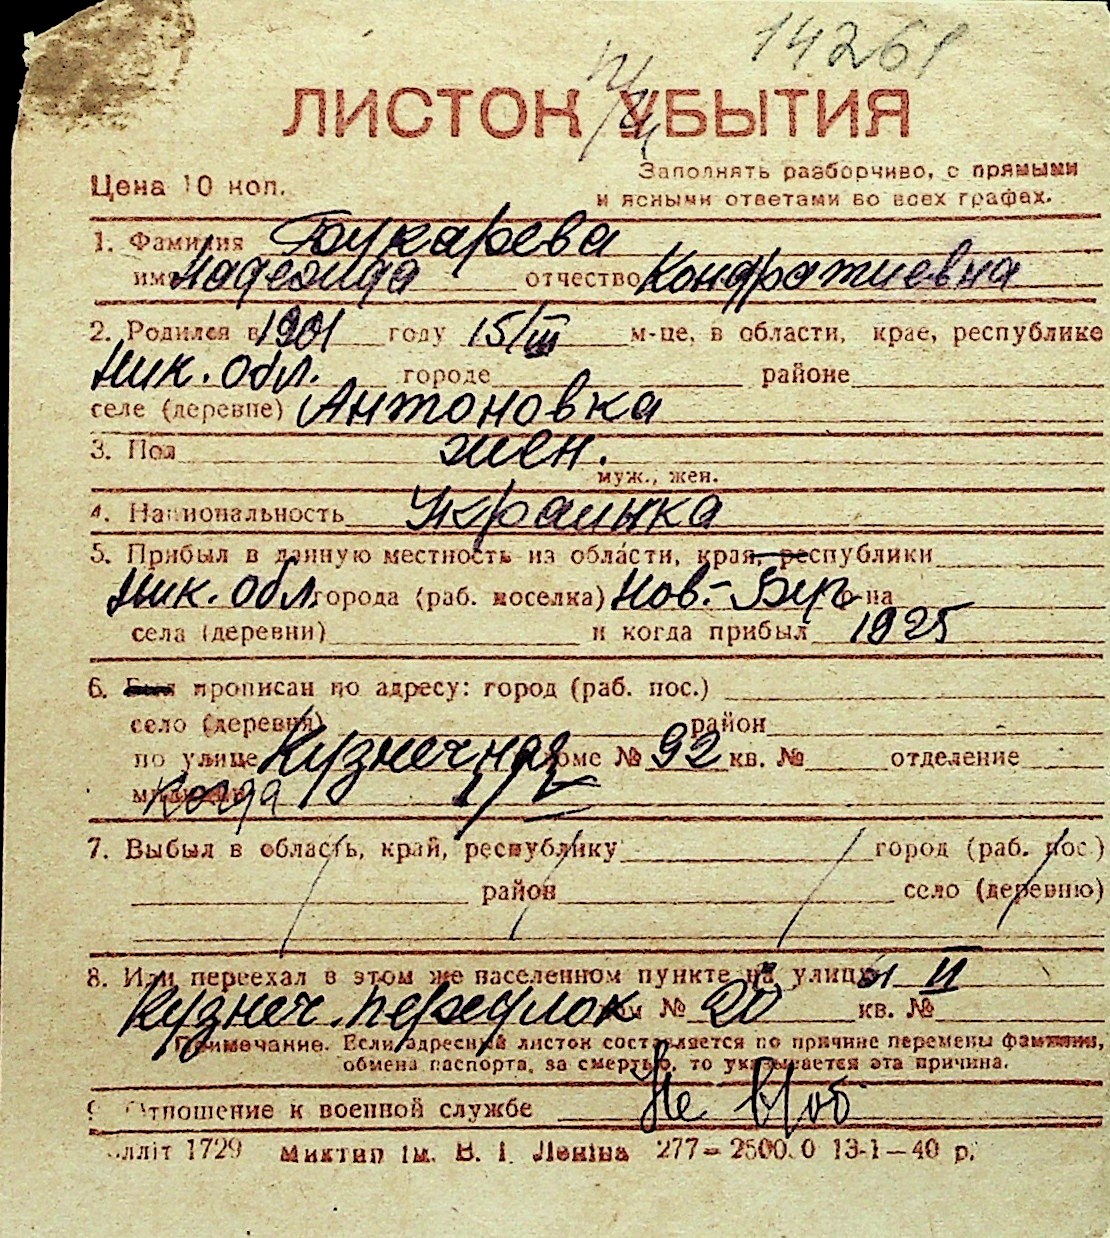 14261
ЛИСТОК УБЫТИЯ
Цена 10 коп.
Заполнять разборчиво, с прямыми
и ясными ответами во всех графах.
1. Фамилия Бухарева
имя Надежда отчество Кондратиевна
2. Родился в 1901 году 15/III м-це, в области, крае, республике
Ник. обл. городе районе
селе (деревне) Антоновка
3. Пол жен.
муж., жен.
4. Национальность Украинка
5. Прибыл в данную местность из области, края, республики
Ник. обл. города (раб. поселка) Нов.-Буг она
села (деревни) и когда прибыл 1925
6. Был прописан по адресу: город (раб. пос.)
село (деревня) район
по улице Кузнечная доме № 92 кв. № отделение
когда
7. Выбыл в область, край, республику город (раб. пос.)
район село (деревню)
8. Или переехал в этом же населенном пункте на улицу II
Кузнеч. переулок дом № 20 кв. №
Примечание. Если адресный листок составляется по причине перемены фамилии,
обмена паспорта, за смертью, то указывается эта причина.
9. Отношение к военной службе Не в/об
1729 Миктип ім. В. І. Леніна 277–2500.0 13-1–40 р.